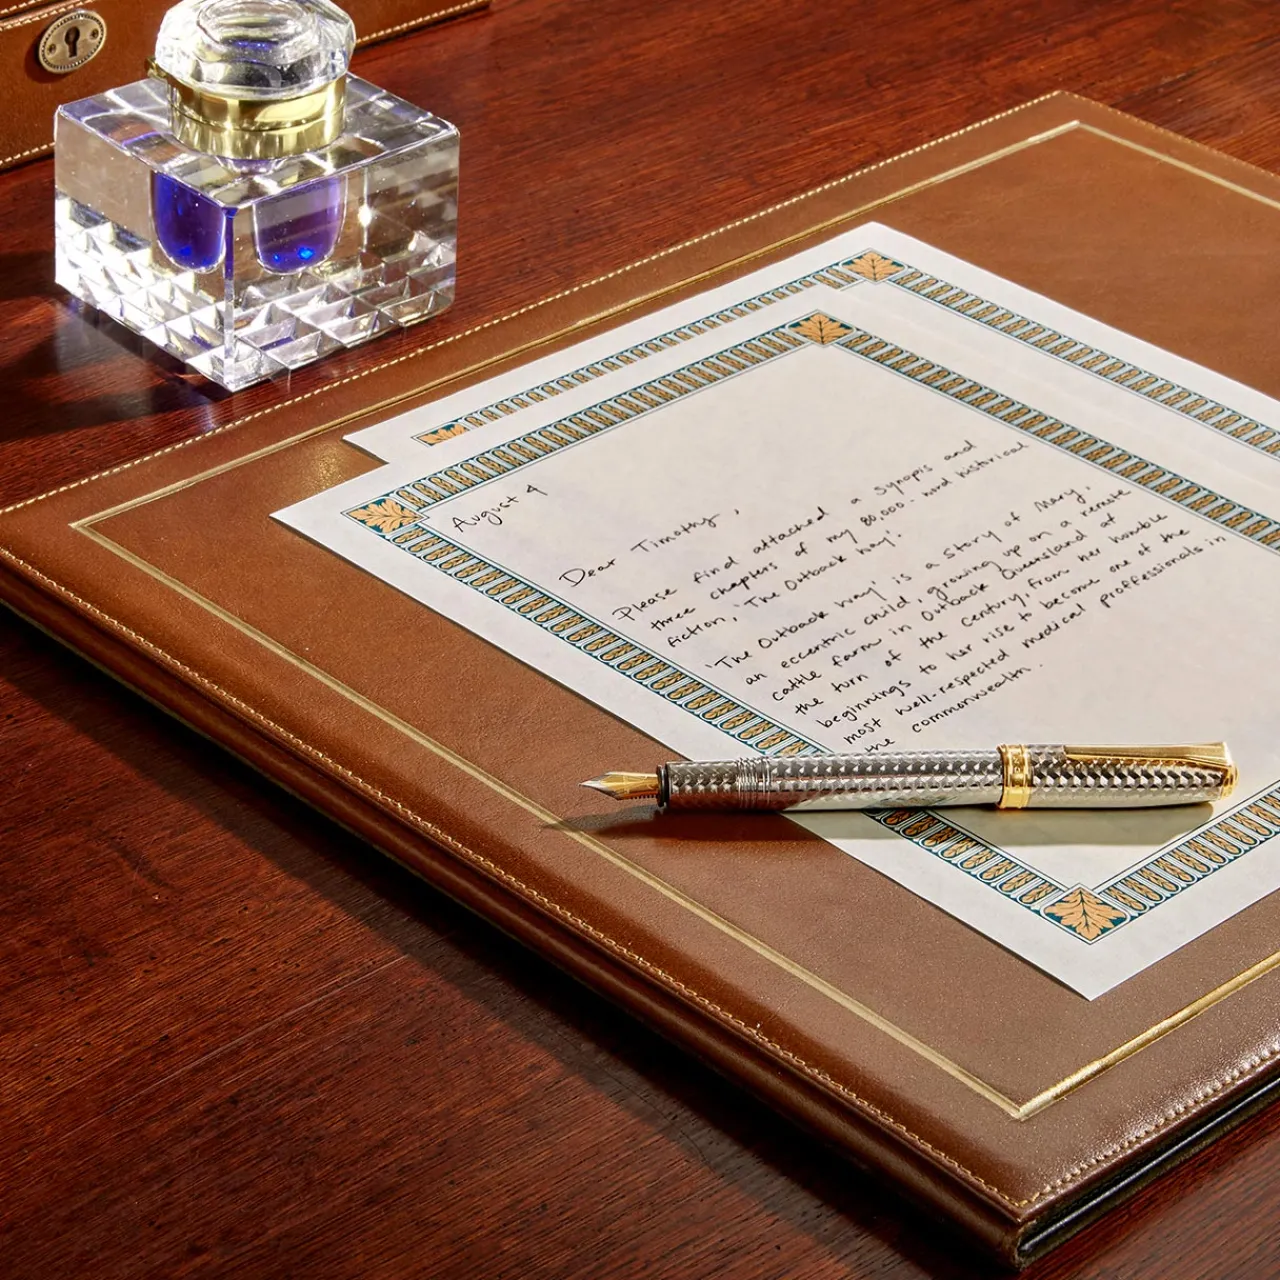 August 4
Dear Timothy,
Please find attached a synopsis and
three chapters of my 80,000-word historical
fiction, 'The Outback Way'.
'The Outback Way' is a story of Mary,
an eccentric child, growing up on a remote
cattle farm in Outback Queensland at
the turn of the century, from her humble
beginnings to her rise to become one of the
most well-respected medical professionals in
the commonwealth.